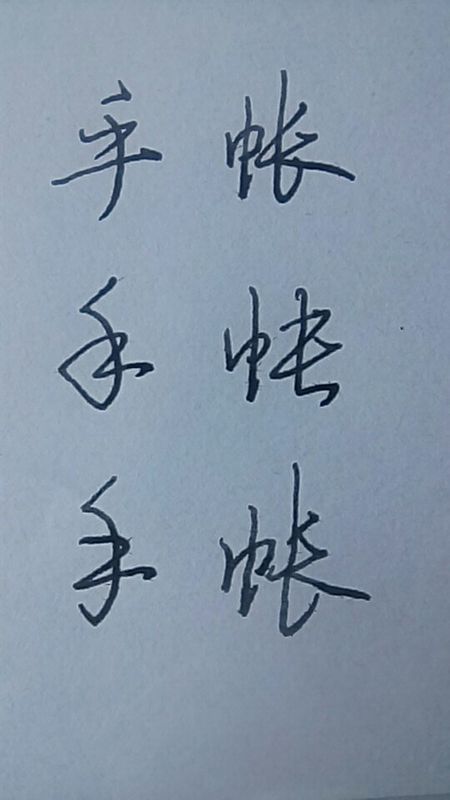 手帐
手帐
手帐